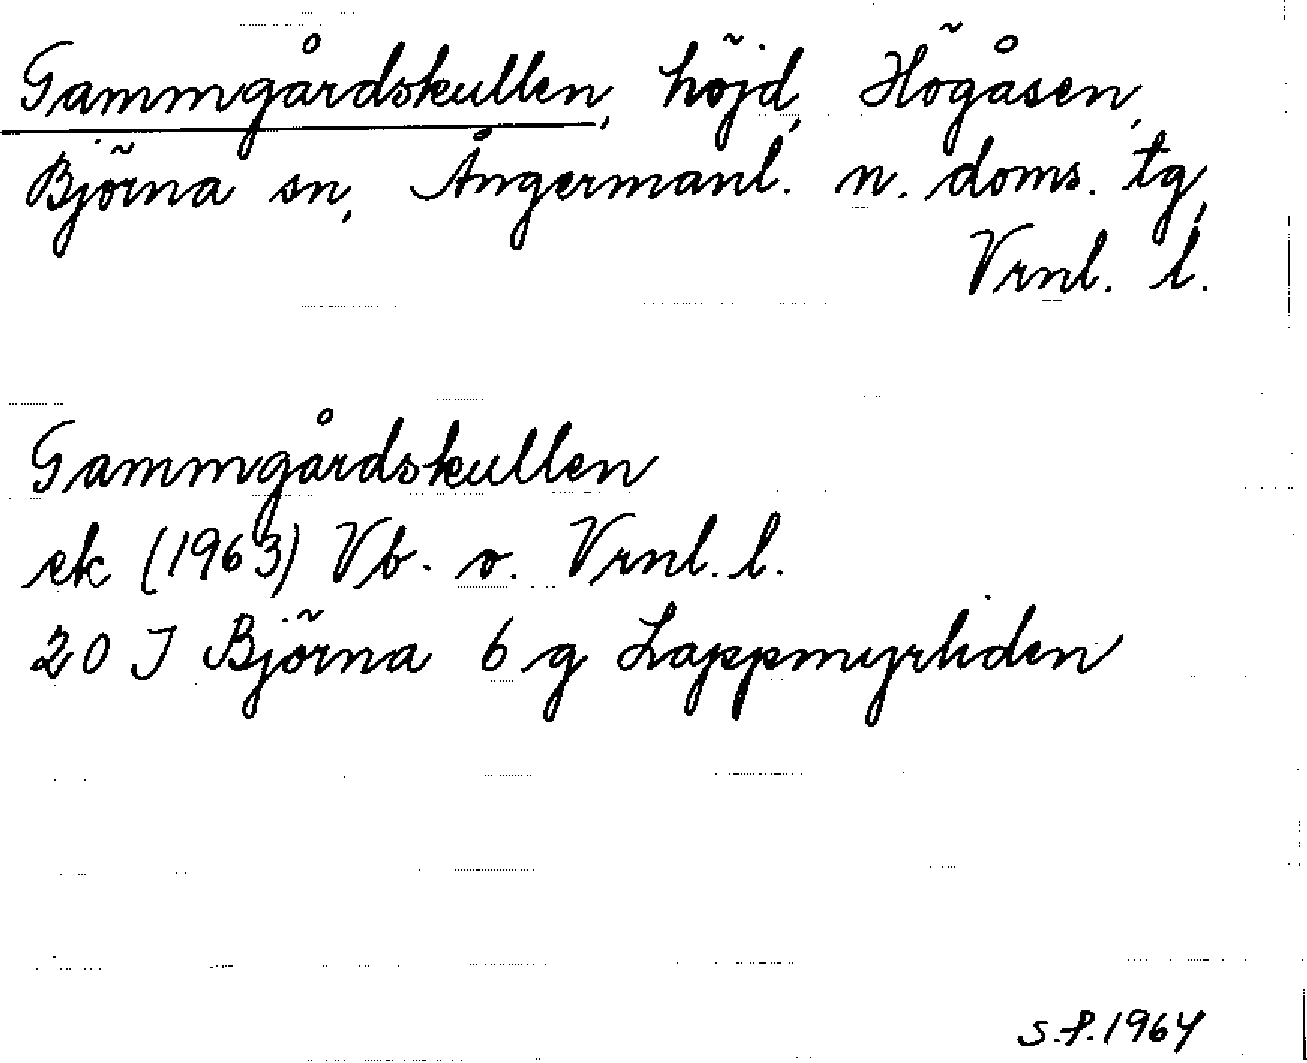 Gammgårdskullen, höjd, Högåsen,
Björna sn, Ångermanl. n. doms. tg,
Vrnl. l.
Gammgårdskullen
ek (1963) Vb. o. Vrnl. l.
20 I Björna 6 g Lappmyrliden
S.P. 1964